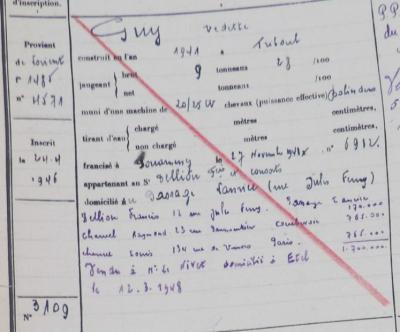 d'inscription.
Guy vedette
construit en l'an 1941 à
Provient de Lorient
n° 1486
n° 4571
jaugeant brut 9 tonneaux 28 /100
net tonneaux /100
muni d'une machine de 20/25 W chevaux (puissance effective)
tirant d'eau chargé mètres centimètres,
non chargé mètres centimètres.
Inscrit
le 24.4
1946
francisé à le 27 Novembre n° 6912.
appartenant au Sr Dellion Fçis et consorts
domicilié à Passage Lanriec (rue Jules Ferry)
Dellion Francis 12 rue Jules Ferry. Passage Lanriec 170.000
Raymond 23 rue Courbevoie 765.000
Louis 134 rue de Paris. 765.000
1.700.000
Vendu à Mr Le domicilié à Etel
le 12.3.1948
N° 3109